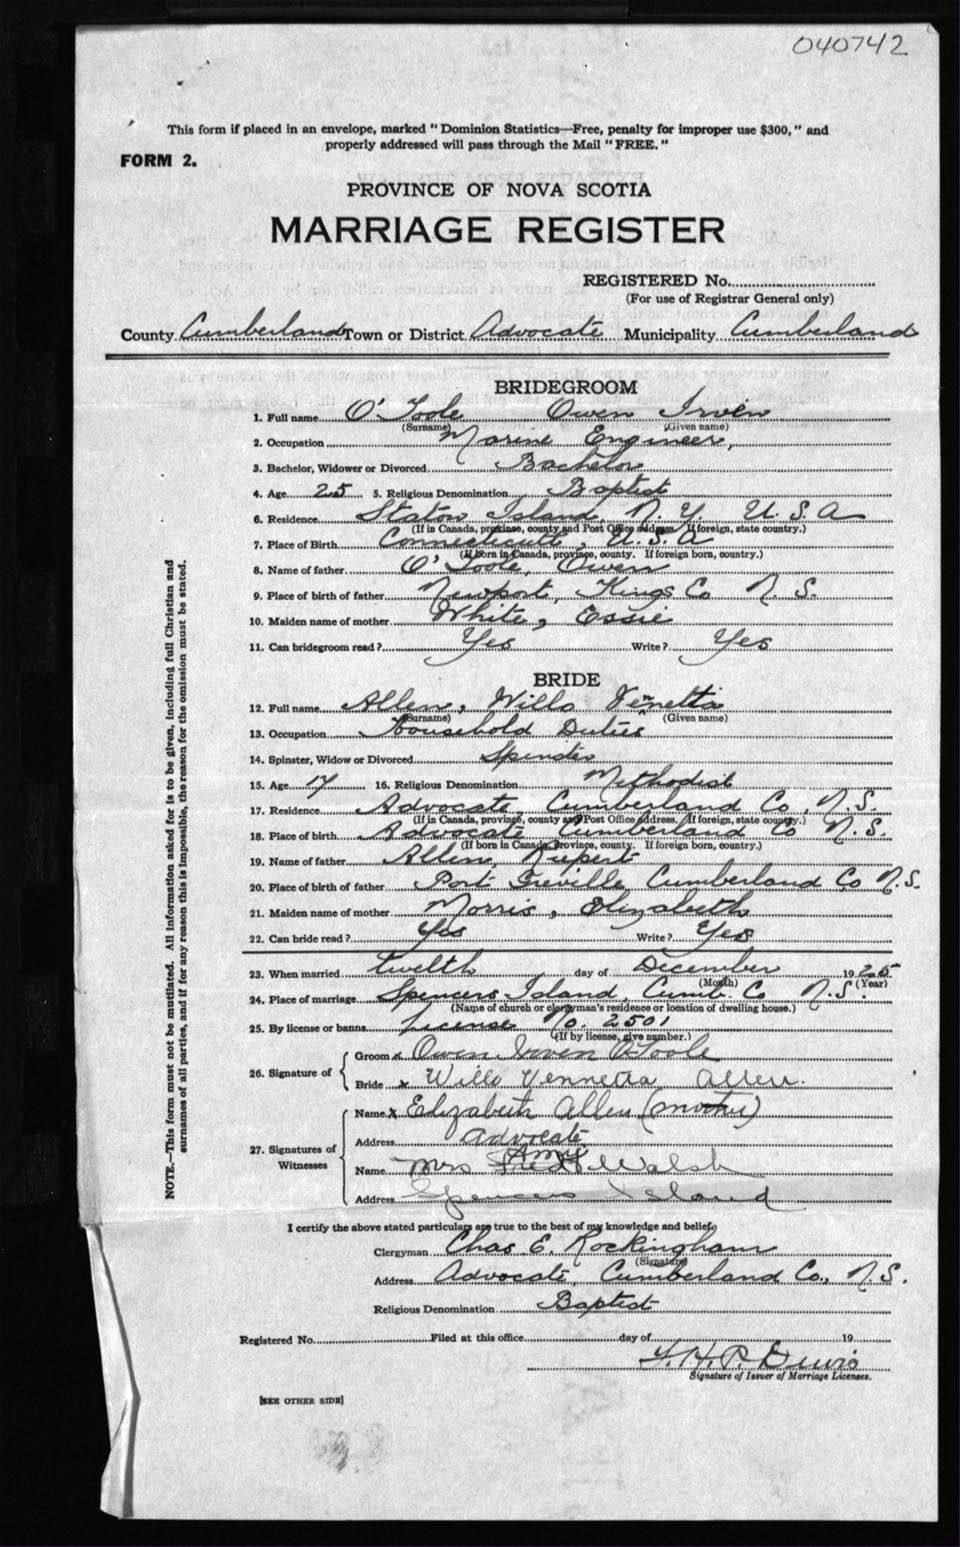 040742
This form if placed in an envelope, marked "Dominion Statistics—Free, penalty for improper use $300," and
properly addressed will pass through the Mail "FREE."
FORM 2.
PROVINCE OF NOVA SCOTIA
MARRIAGE REGISTER
REGISTERED No.
(For use of Registrar General only)
County Cumberland Town or District Advocate Municipality Cumberland
BRIDEGROOM
1. Full name O'Toole Owen Irven
(Surname) (Given name)
2. Occupation Marine Engineer,
3. Bachelor, Widower or Divorced Bachelor
4. Age 25 5. Religious Denomination Baptist
6. Residence Staton Island, N. Y. U. S. A
(If in Canada, province, county and Post Office address. If foreign, state country.)
7. Place of Birth Connecticutt, U. S. A
(If born in Canada, province, county. If foreign born, country.)
8. Name of father O'Toole, Owen
9. Place of birth of father Newport, Kings Co N. S.
10. Maiden name of mother White, Essie
11. Can bridegroom read? Yes Write? Yes
BRIDE
12. Full name Allen, Willa Vennetta
(Surname) (Given name)
13. Occupation Household Duties
14. Spinster, Widow or Divorced Spinster
15. Age 17 16. Religious Denomination Methodist
17. Residence Advocate, Cumberland Co, N. S.
(If in Canada, province, county and Post Office Address. If foreign, state country.)
18. Place of birth Advocate Cumberland Co N. S.
(If born in Canada, Province, county. If foreign born, country.)
19. Name of father Allen, Rupert
20. Place of birth of father Port Greville, Cumberland Co N. S.
21. Maiden name of mother Morris, Elizabeth
22. Can bride read? Yes Write? Yes
23. When married twelth day of December 1925
(Month) (Year)
24. Place of marriage Spencers Island, Cumb. Co N. S.
(Name of church or clergyman's residence or location of dwelling house.)
25. By license or banns License No. 2501
(If by license, give number.)
26. Signature of Groom x Owen Irven O'Toole
Bride x Willa Vennetta Allen.
27. Signatures of Witnesses Name x Elizabeth Allen (mother)
Address Advocate
Amy
Name Mrs Fred Walsh
Address Spencers Island
I certify the above stated particulars are true to the best of my knowledge and belief.
Clergyman Chas E. Rockingham
(Signature)
Address Advocate, Cumberland Co., N. S.
Religious Denomination Baptist
Registered No. Filed at this office day of 19
H. P.
Signature of Issuer of Marriage Licenses.
[SEE OTHER SIDE]
NOTE.—This form must not be mutilated. All information asked for is to be given, including full Christian and
surnames of all parties, and if for any reason this is impossible, the reason for the omission must be stated.